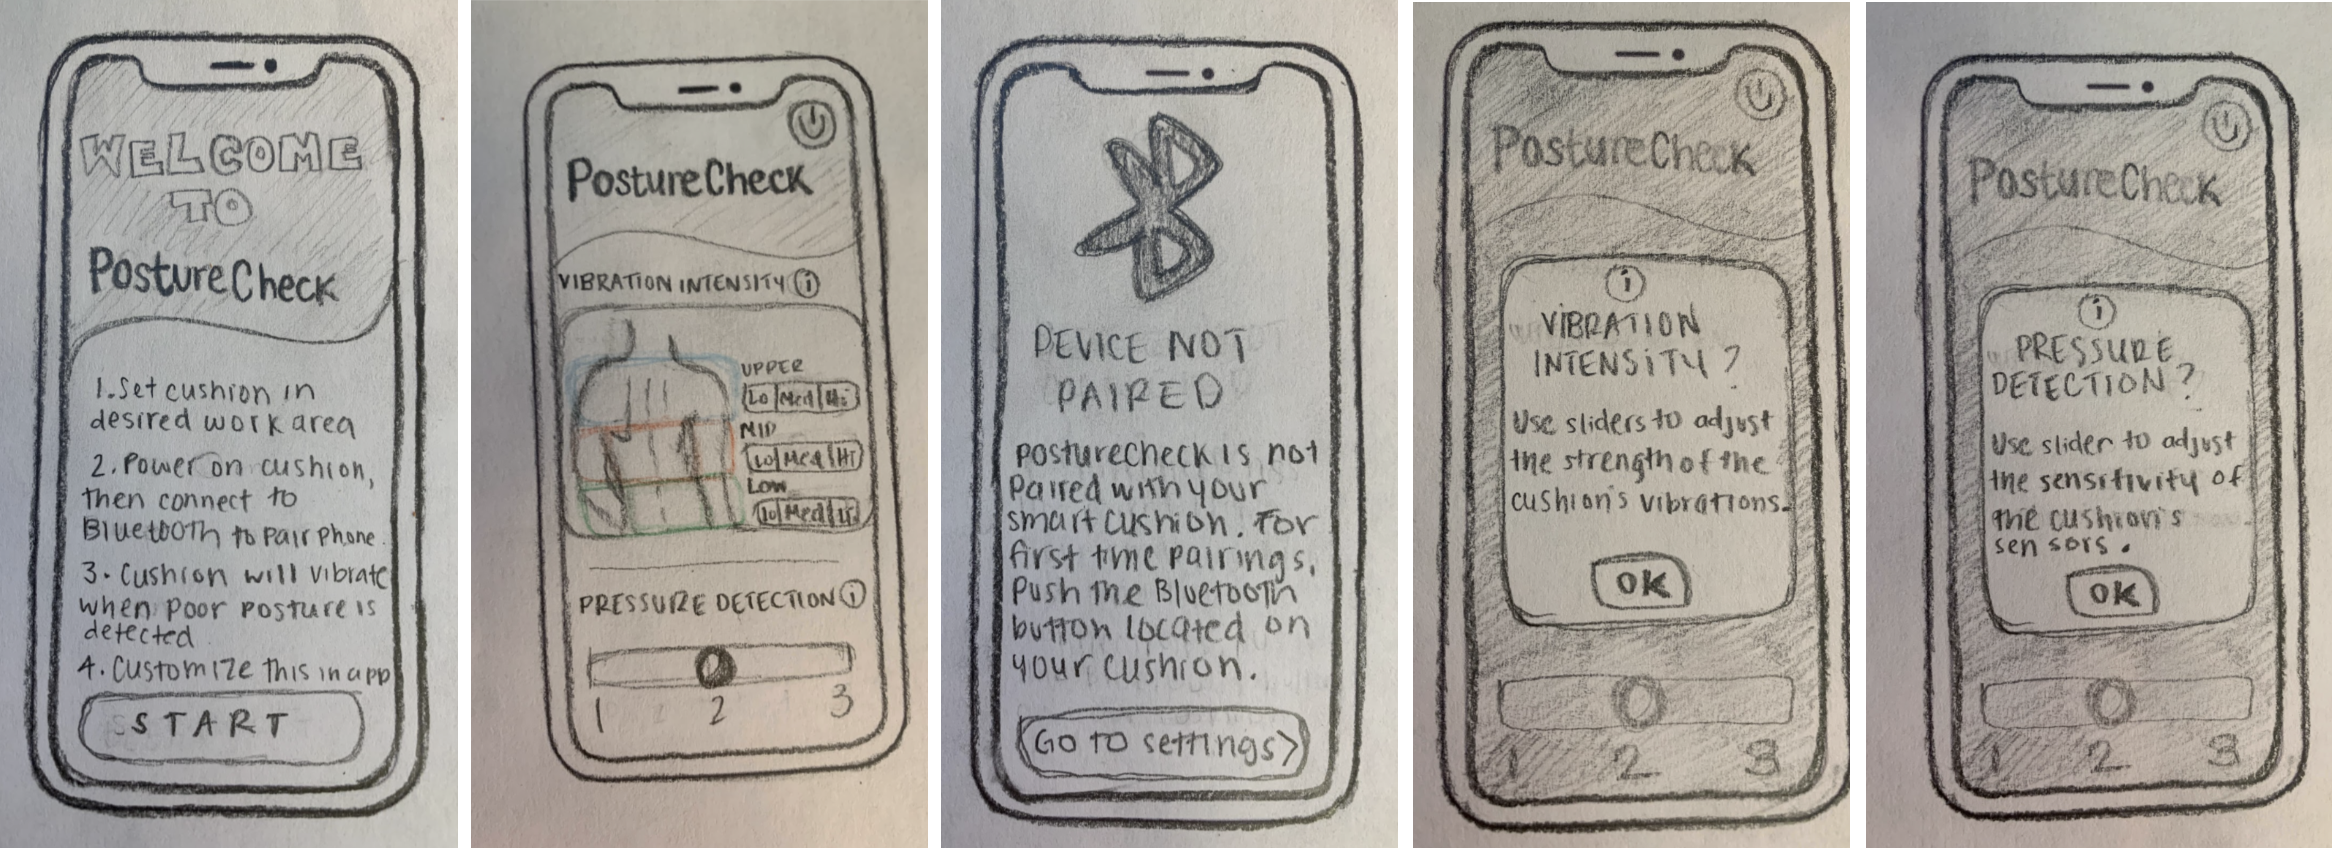 WELCOME
TO
PostureCheck
1. Set cushion in
desired work area
2. Power on cushion,
then connect to
Bluetooth to pair phone.
3. Cushion will vibrate
when poor posture is
detected.
4. Customize this in app
START
PostureCheck
VIBRATION INTENSITY i
UPPER
Lo Med Hi
MID
Lo Med Hi
LOW
Lo Med Hi
PRESSURE DETECTION i
1 2 3
DEVICE NOT
PAIRED
posturecheck is not
paired with your
smart cushion. For
first time pairings,
push the Bluetooth
button located on
your cushion.
Go to settings>
PostureCheck
i
VIBRATION
INTENSITY?
Use sliders to adjust
the strength of the
cushion's vibrations.
OK
1 2 3
PostureCheck
i
PRESSURE
DETECTION?
Use slider to adjust
the sensitivity of
the cushion's
sensors.
OK
1 2 3